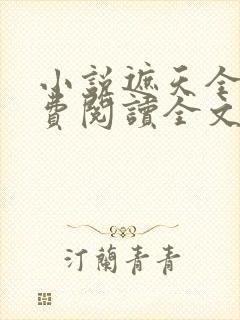 小説遮天全
費閱讀全文
汀蘭青青